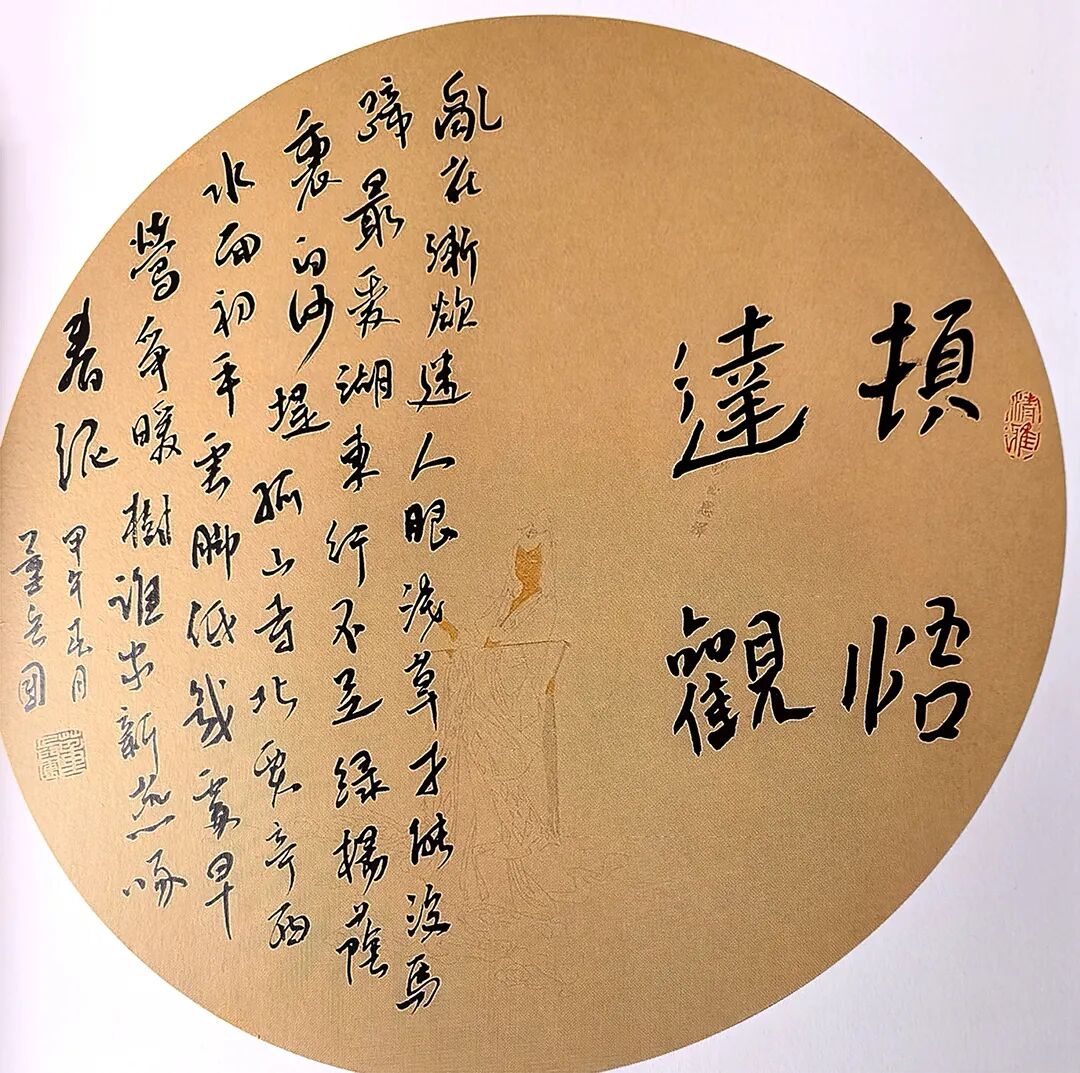 清雅
頓悟
達觀
亂花漸欲迷人眼淺草才能沒馬
蹄最愛湖東行不足綠楊蔭
裏白沙堤孤山寺北賈亭西
水面初平雲脚低幾處早
鶯爭暖樹誰家新燕啄
春泥
甲午春月